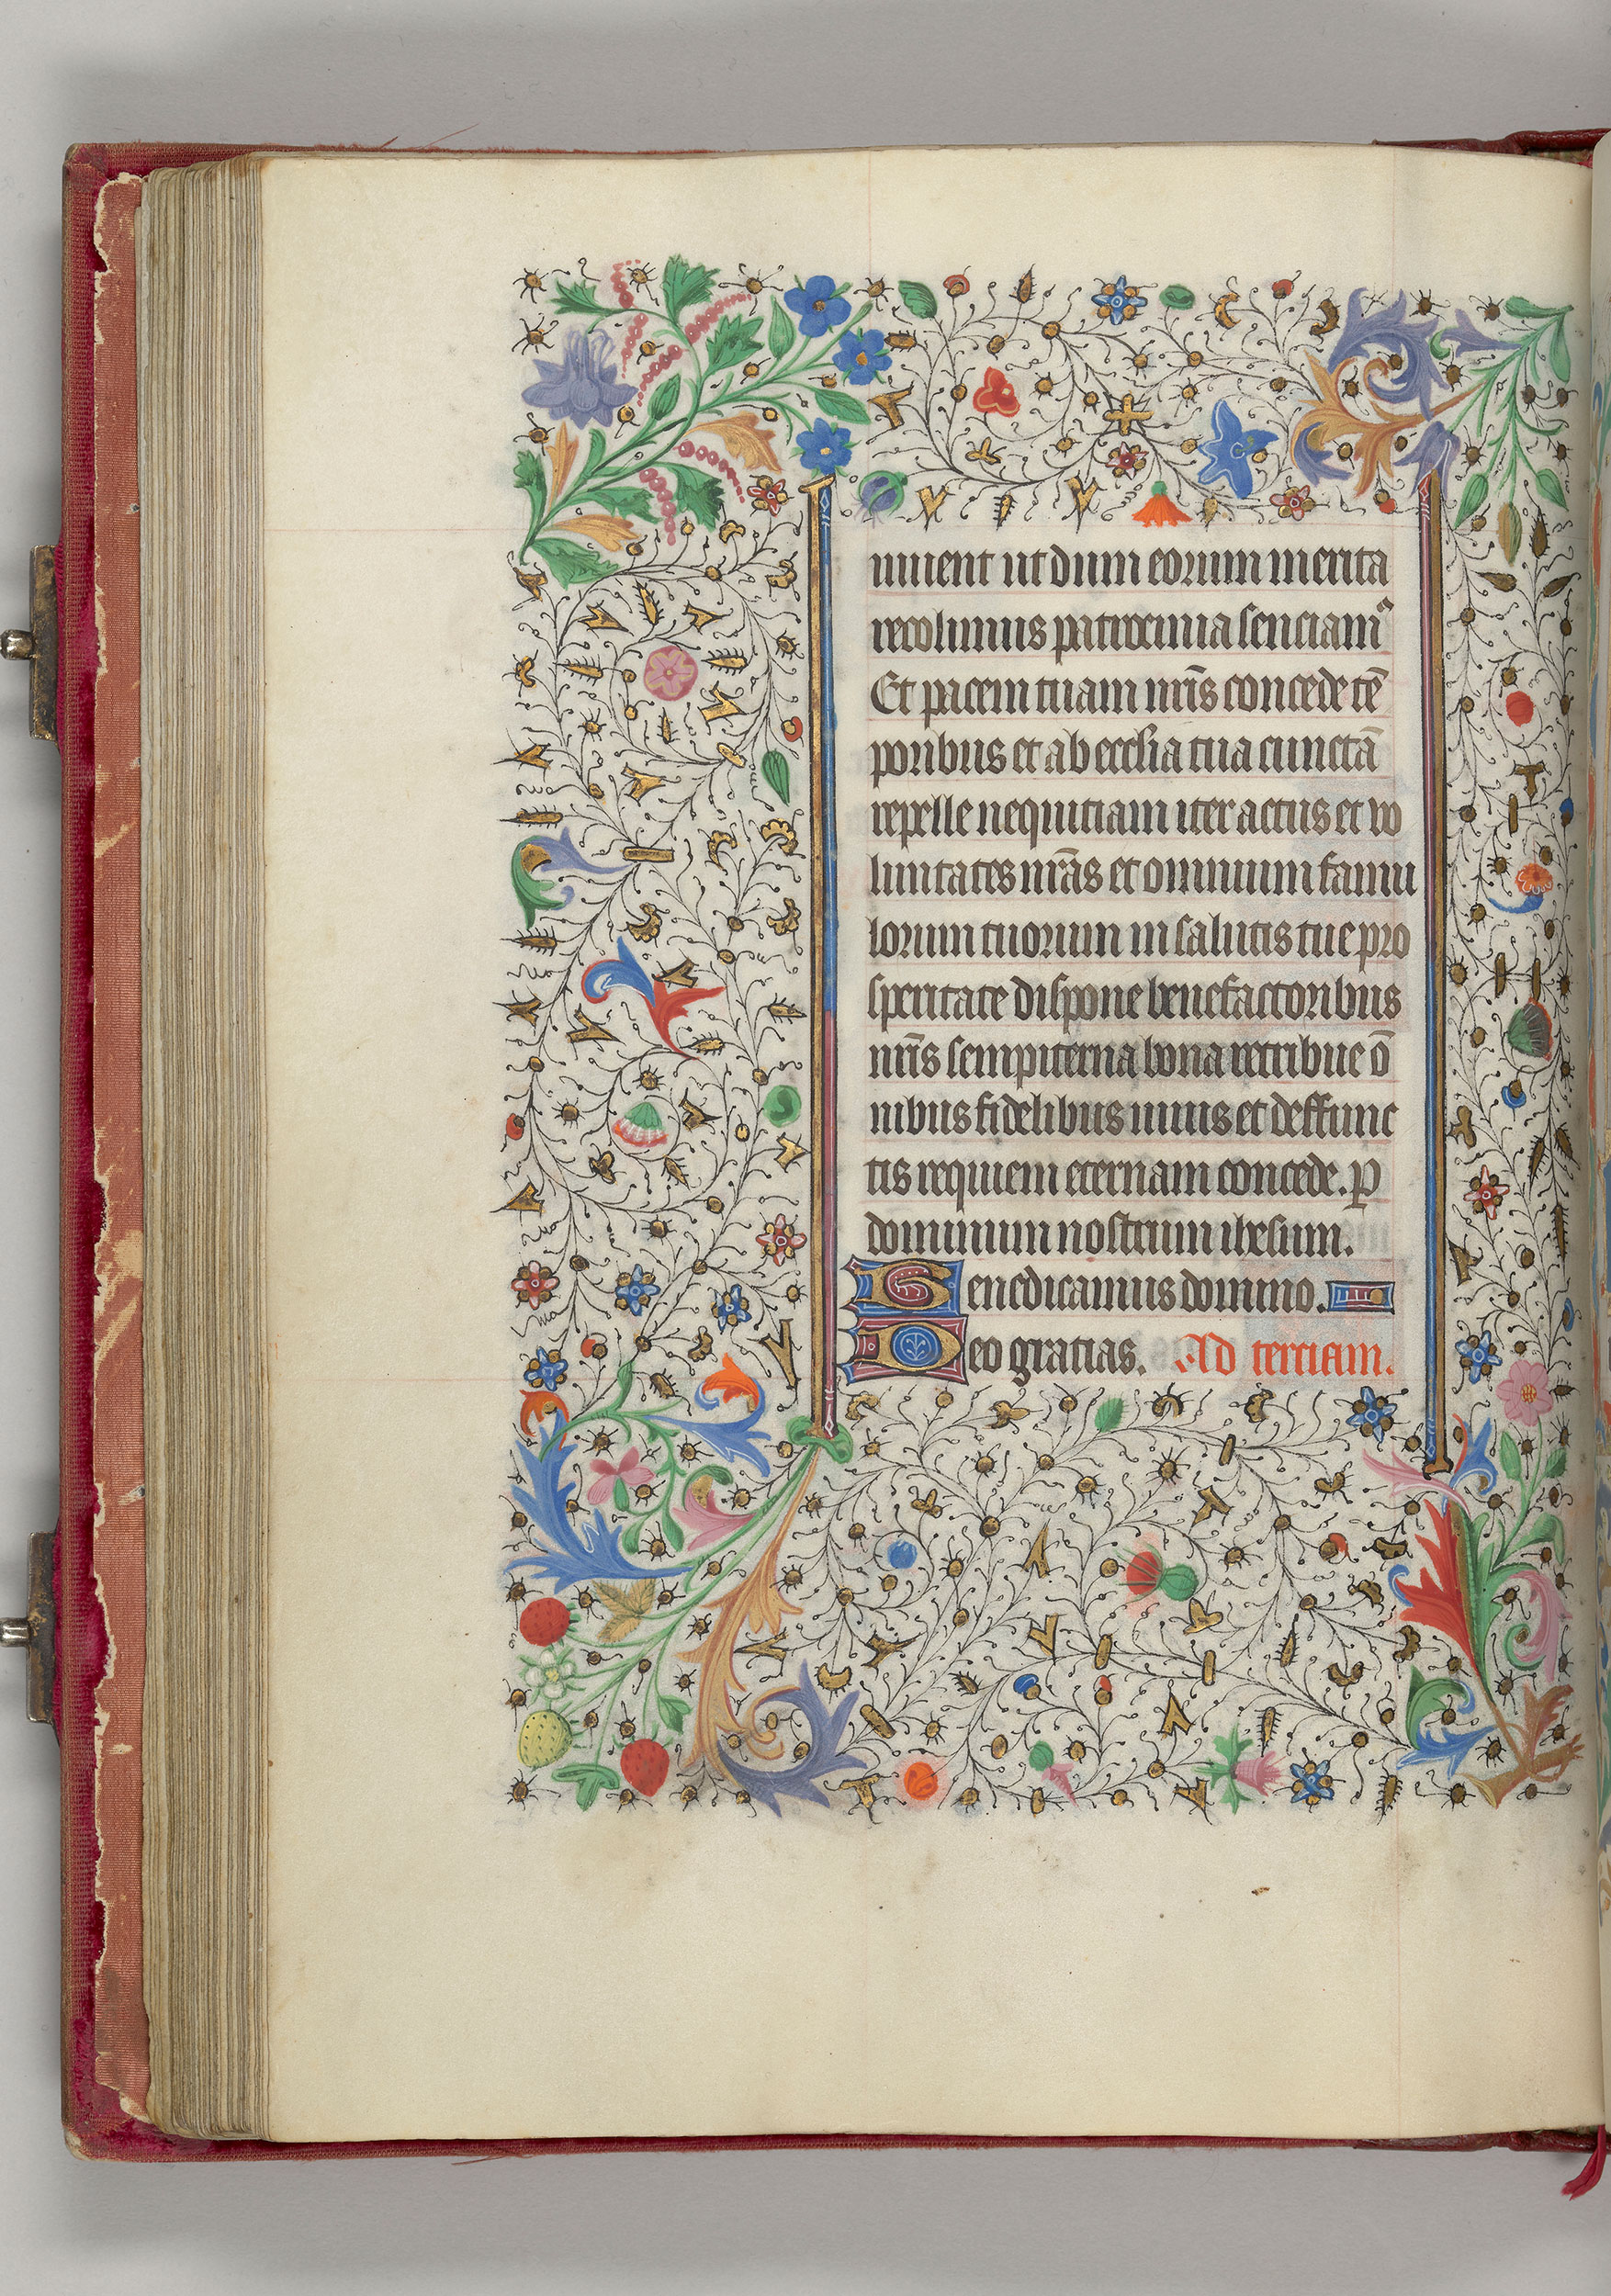 iuuent ut dum eorum merita
recolimus patrocinia senciamꝰ
Et pacem tuam nr̄is concede tē
poribus et ab ecclesia tua cunctā
repelle nequitiam iter actus et vo
luntates nr̄as et omnium famu
lorum tuorum in salutis tue pro
speritate dispone benefactoribus
nr̄is sempiterna bona retribue ō
nibus fidelibus viuis et deffunc
tis requiem eternam concede. P
dominum nostrum ihesum.
Benedicamus domino.
Deo gratias. Ad terciam.